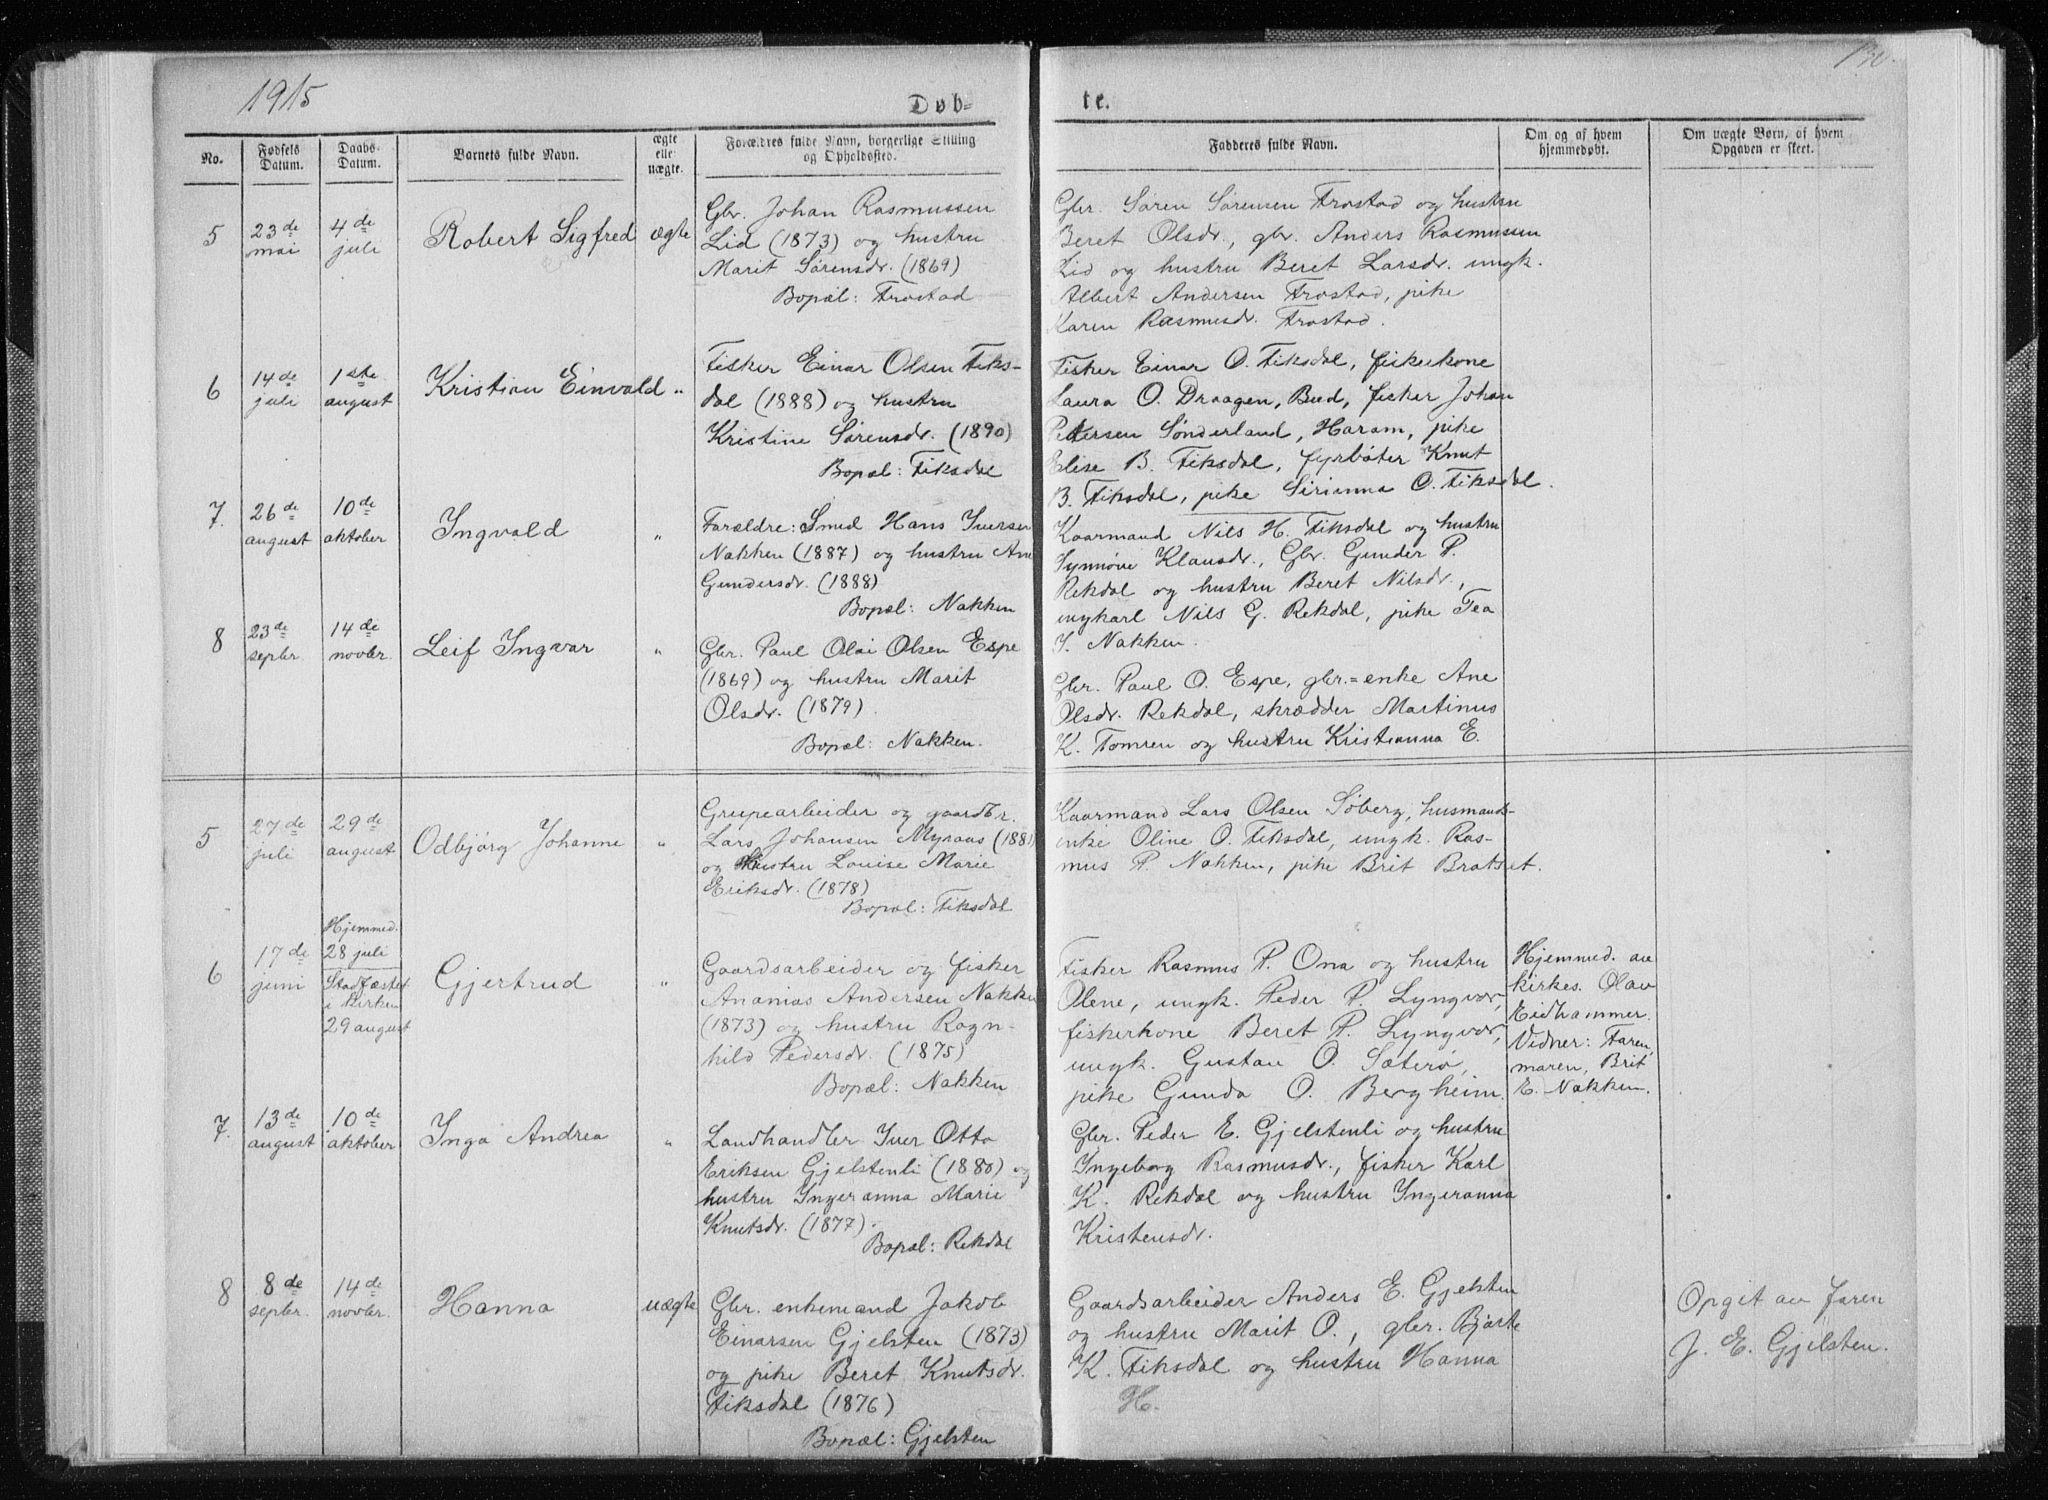 1915
Døb-
te.
No.
Fødsels Datum.
Daabs-Datum.
Barnets fulde Navn.
ægte elle uægte.
Forældres fulde Navn, borgerlige Stilling
og Opholdssted.
Fadderes fulde Navn.
Om og af hvem
hjemmedøbt.
Om uægte Børn, af hvem
Opgaven er skeet.
5
23de
mai
4de
juli
Robert Sigfred
ægte
Gbr. Johan Rasmussen
Lid (1873) og hustru
Marit Sørensdr. (1869)
Bopæl: Frostad
Gbr. Søren Sørensen Frostad og hustru
Beret Olsdr., gbr. Anders Rasmussen
Lid og hustru Beret Larsdr. ungk.
Albert Andersen Frostad, pike
Karen Rasmusdr. Frostad.
6
14de
juli
1ste
august
Kristian Einvald
"
Fisker Einar Olsen Fiks-
dal (1888) og hustru
Kristine Sørensdr. (1890)
Bopæl: Fiksdal
Fisker Einar O. Fiksdal, fiskerkone
Laura O. Draagen, Bud, fisker Johan
Petersen Sønderland, Haram, pike
Elise B. Fiksdal, fyrbøter Knut
B. Fiksdal, pike Sirianna O. Fiksdal.
7.
26de
august
10de
oktober
Ingvald
"
Forældre: Smed Hans Iversen
Nakken (1887) og hustru Ane
Gundersdr. (1888)
Bopæl: Nakken
Kaarmand Nils H. Fiksdal og hustru
Synnøve Klausdr., Gbr. Gunder P.
Rekdal og hustru Beret Nilsdr.,
ungkarl Nils G. Rekdal, pike Tea
I. Nakken.
8
23de
septbr.
14de
novbr.
Leif Ingvar
"
Gbr. Paul Olai Olsen Espe
(1869) og hustru Marit
Olsdr. (1879)
Bopæl: Nakken.
Gbr. Paul O. Espe, gbr.=enke Ane
Olsdr. Rekdal, skrædder Martinus
K. Tomren og hustru Kristianna E.
5
27de
juli
29de
august
Odbjørg Johanne
"
Grupearbeider og gaardbr.
Lars Johansen Myraas (1881)
og hustru Louise Marie
Eriksdr. (1878)
Bopæl: Fiksdal
Kaarmand Lars Olsen Søberg, husmands-
enke Oline O. Fiksdal, ungk. Ras-
mus P. Nakken, pike Brit Bratset.
6
17de
juni
Hjemmed.
28 juli
Stadfæstet
i kirken
29 august
Gjertrud
"
Gaardsarbeider og fisker
Ananias Andersen Nakken
(1873) og hustru Ragn-
hild Pedersdr. (1875)
Bopæl: Nakken
Fisker Rasmus P. Ona og hustru
Olene, ungk. Peder P. Lyngvær,
fiskerkone Beret P. Lyngvær,
ungk. Gustav O. Sæterø,
pike Gunda O. Bergheim.
Hjemmed. av
kirkes. Olav
Eidhammer.
Vidner: Faren,
moren, Brit
E. Nakken.
7.
13de
august
10de
oktober
Inga Andrea
"
Landhandler Iver Otto
Eriksen Gjelstenli (1880) og
hustru Ingeranna Marie
Knutsdr. (1877).
Bopæl: Rekdal
Gbr. Peder E. Gjelstenli og hustru
Ingeborg Rasmusdr., fisker Karl
K. Rekdal og hustru Ingeranna
Kristensdr.
8
8de
septbr.
14de
novbr.
Hanna
uægte
Gbr. enkemand Jakob
Einarsen Gjelsten (1873)
og pike Beret Knutsdr.
Fiksdal (1876)
Bopæl: Gjelsten
Gaardsarbeider Anders E. Gjelsten
og hustru Marit O., gbr. Bjarte
K. Fiksdal og hustru Hanna
H.
Opgit av faren
J. E. Gjelsten.